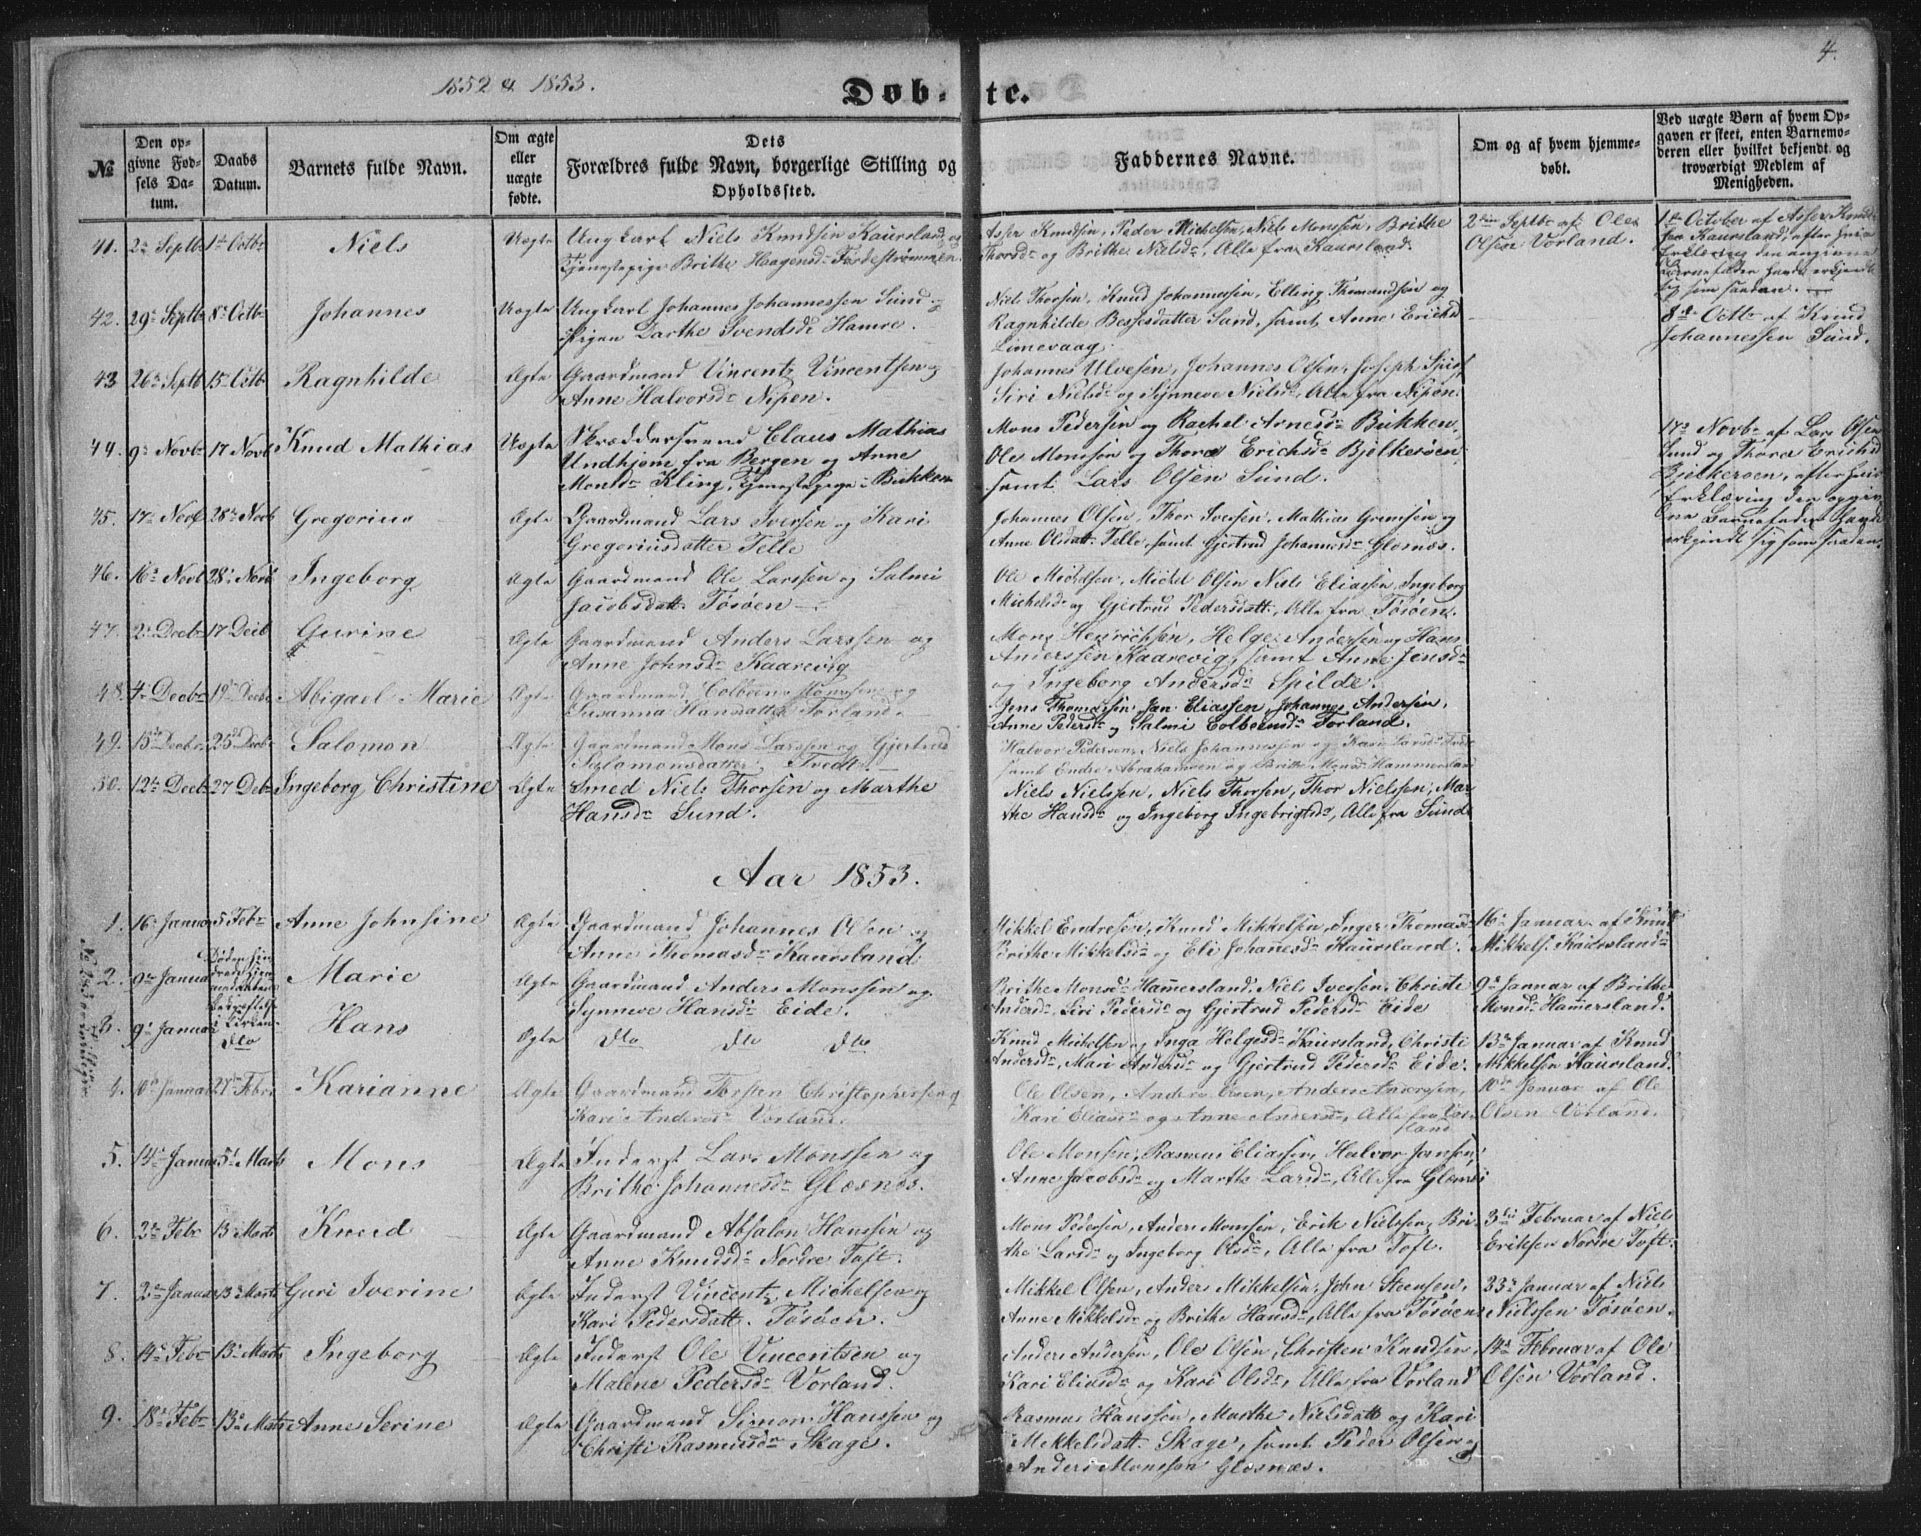 4.
1852 & 1853.
Døb-te.
№
Den opgivne Fødsels Datum.
Daabs Datum.
Barnets fulde Navn.
Om ægte eller uægte fødte.
Dets Forældres fulde Navn, borgerlige Stilling og Opholdssted.
Faddernes Navne.
Om og af hvem hjemmedøbt.
Ved uægte Børn af hvem Opgaven er skeet, enten Barnemoderen eller hvilket bekjendt og troværdigt Medlem af Menigheden.
41. 2de Septbr 1ste Octbr Niels Uægte Ungkarl Niels Knudsen Kaursland og
Tjenestepige Brithe Haagensdr Førdestrømmen.
Asser Knudsen, Peder Michelsen, Niels Monssen, Brithe
Thorsdr og Brithe Nielsdr, Alle fra Kaursland.
2den Septbr af Ole
Olsen Vorland.
1ste October af Asser Knuds
fra Kaursland, efter hvis
Erklering den angivne
Barnefader havde erkjendt
sig som saadan.
42. 29de Septbr 8de Octbr Johannes Uægte Ungkarl Johannes Johannessen Sund og
Pigen Barthe Svendsdr Hamre.
Niels Thorsen, Knud Johannessen, Elling Thomassen og
Ragnhilde Bessesdatter Sund, samt Anne Erichsd
Limevaag.
8de Octbr af Knud
Johannessen Sund.
43 26de Septb 15de Octb Ragnhilde Ægte Gaardmand Vincentz Vincentsen og
Anne Halvorsdr Nipen.
Johannes Ulvesen, Johannes Olsen, Joseph
Siri Nielsdr og Synneve Nielsdr, Alle fra Nipen.
44. 9de Novbr 17 Novb Knud Mathias Uægte Skræddersvend Claus Mathias
Undhjem fra Bergen og Anne
Monsdr Kling, Tjenestepige i Bukken
Mons Pedersen og Rachel Arnesdr Bukken,
Ole Monssen og Thora Erichsdr Bjelkerøen
samt Lars Olsen Sund.
17de Novbr af Lars Olsen
Sund og Thora Erichsd
Bjelkerøen, efter hvis
Erklæring den opgiv
ne Barnefader havde
erkjendt sig som saadan.
45. 17de Novb 28de Novb Gregorius Ægte Gaardmand Lars Iversen og Kari
Gregoriusdatter Telle
Johannes Olsen, Thor Iversen, Mathias Grimsen og
Anne Olsdatt. Telle, samt Gjertrud Johannesdr Glosnæs.
46. 16de Novb 28de Novb Ingeborg Ægte Gaardmand Ole Larssen og Salmi
Jacobsdatt. Tøsøen
Ole Michelsen, Michel Olsen, Niels Eliassen, Ingeborg
Michelsdr og Gjertrud Pedersdatt., Alle fra Tøsøen.
47. 2de Decbr 17 Decb Gurine Ægte Gaardmand Anders Larssen og
Anne Johnsdr Kaarevig
Mons Henrichsen, Helge Andersen og Hans
Anderssen Kaarevig, samt Anne Jensdr
og Ingeborg Andersdr Spilde.
48. 4de Decbr 19de Decbr Abigael Marie Ægte Gaardmand Colbeen Thomassen og
Susanna Hansdatter Torland.
Jens Thomassen, Jan Eliassen, Johannes Andersen,
Anne Pedersdr og Salmi Colbeensdr Torland.
49. 15de Decbr 25de Decbr Salomon Ægte Gaardmand Mons Larssen og Gjertrud
Salomonsdatter Tvedt.
Halvor Pedersen, Niels Johannessen og Kari Larsdr Tvedt
samt Endre Abrahamsen og Brithe Monsdr Hammersland
50. 12te Decbr 27 Debr Ingeborg Christine Ægte Smed Niels Thorsen og Marthe
Hansdr Sund.
Niels Nielssen, Niels Thorsen, Thor Nielssen, Mar
the Hansdr og Ingeborg Ingebrigtsdr, Alle fra Sund
Aar 1853.
1. 16de Januar 5 Febr Anne Johnsine Ægte Gaardmand Johannes Olsen og
Anne Thomasdr Kaursland.
Mikkel Endresen, Knud Mikkelsen, Inger Thomasdr
Brithe Mikkelsdr og Eli Johanesdr Kaursland.
16de Januar af Knud
Mikkels. Kaursland
2. 9de Januar Marie Ægte Gaardmand Anders Monssen og
Synneve Hansdr Eide.
Brithe Monsdr Hamersland, Niels Iversen, Christi
Andersdr, Siri Pedersdr og Gjertrud Pedersdr Eide
9de Januar af Brithe
Monsdr Hamersland.
3. 9de Januar Dto Hans Ægte Dto Dto Dto
Knud Michelsen og Inga Helgesdr Kaursland, Christi
Andersdr, Mari Andersdr og Gjertrud Pedersdr Eide.
13de Januar af Knud
Mikkelsen Kaursland.
4. 10de Januar 27de Febr Karianne Ægte Gaardmand Torsten Christophersen og
Kari Andersdr Vorland.
Ole Olsen, Anders Olsen, Anders Andersen,
Kari Eliasdr og Anne Andersdr, Alle fra Vor-
land
10de Januar af Ole
Olsen Vorland.
5. 14de Januar 5te Marts Mons Ægte Inderst Lars Monssen og
Brithe Johannesdr Glæsnes.
Ole Monsen, Rasmus Eliassen, Halvor Jansen,
Anne Jacobsdr og Marthe Larsdr, Alle fra Glæsnes
6. 2de Febr 13 Marts Knud Ægte Gaardmand Absalon Hanssen og
Anne Knudsdr Nordre Toft.
Mons Pedersen, Anders Monssen, Erik Nielssen, Bri-
the Larsdr og Ingeborg Olsdr, Alle fra Toft.
3die Februar af Niels
Eriksen Nordre Toft.
7. 2den Januar 13 Marts Guri Iverine Ægte Inderst Vincentz Michelsen og
Kari Pedersdatt. Tøsøen.
Mikkel Olsen, Anders Mikkelsen, John Steensen,
Anne Mikkelsdr og Brithe Hansdr, Alle fra Tøsøen
23de Januar af Niels
Nielssen Tøsøen.
8. 14de Febr 13de Marts Ingeborg Ægte Inderst Ole Vincentsen og
Malene Pedersdr Vorland.
Anders Andersen, Ole Olsen, Christen Knudsen,
Kari Eliasdr og Kari Olsdr, Alle fra Vorland
14de Februar af Ole
Olsen Vorland.
9. 18de Febr 13de Marts Anne Serine Ægte Gaardmand Simon Hanssen og
Christi Rasmusdr Skage.
Rasmus Hanssen, Marthe Nielsdatt og Kari
Mekkelsdatt. Skage, samt Peder Olsen og
Anders Monssen Glosnæs.